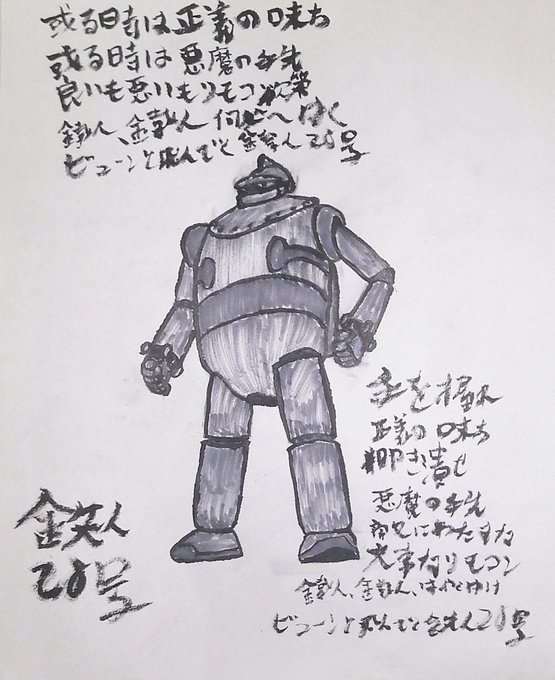 或る時は正義の味方
或る時は悪魔の手先
良いも悪いもリモコン次第
鐵人、鐵人 何処へゆく
ビューンと飛んでく鐵人28号
手を握れ
正義の味方
叩き潰せ
悪魔の手先
にわたすな
大事なリモコン
鐵人、鐵人、はやくゆけ
ビューンと飛んでく鉄人28号
鉄人
28号